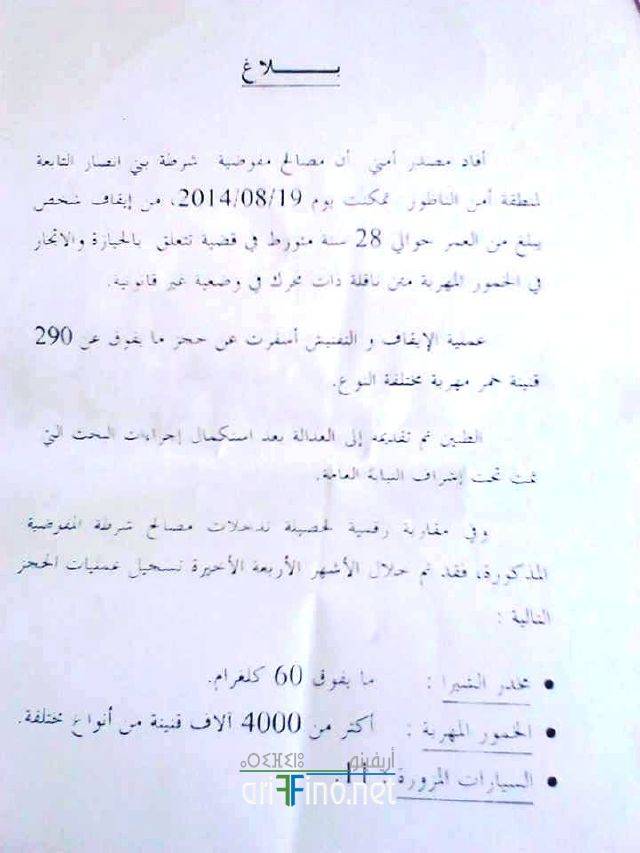 بـــــلاغ
أفاد مصدر أمني أن مصالح مفوضية شرطة بني انصار التابعة
لمنطقة أمن الناظور تمكنت يوم 2014/08/19، من إيقاف شخص
يبلغ من العمر حوالي 28 سنة متورط في قضية تتعلق بالحيازة والاتجار
في الخمور المهربة متن ناقلة ذات محرك في وضعية غير قانونية.
عملية الإيقاف و التفتيش أسفرت عن حجز ما يفوق عن 290
قنينة خمر مهربة مختلفة النوع.
الظنين تم تقديمه إلى العدالة بعد استكمال إجراءات البحث التي
تمت تحت إشراف النيابة العامة.
وفي مقاربة رقمية لحصيلة تدخلات مصالح شرطة المفوضية
المذكورة، فقد تم خلال الأشهر الأربعة الأخيرة تسجيل عمليات الحجز
التالية :
• مخدر الشيرا : ما يفوق 60 كلغرام.
• الخمور المهربة : أكثر من 4000 آلاف قنينة من أنواع مختلفة.
• السيارات المزورة : 11.
ⴰⵔⵉⴼⵉⵏⵓ أريفينو
ariFFino.net